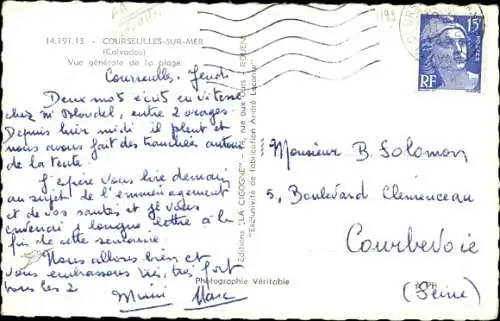 14.191.13 - COURSEULLES-SUR-MER
(Calvados)
Vue générale de la plage
Courseulles, Jeudi
Deux mots écrits en vitesse
chez M Blondel, entre 2 orages.
Depuis hier midi il pleut et
nous avons fait des tranchées autour
de la tente.
J'espère vous lire demain
au sujet de l'emménagement
et de vos santés et je vous
enverrai 1 longue lettre à la
fin de cette semaine.
Nous allons bien et
vous embrassons très, très fort
tous les 2
Mimi Marc
Editions "LA CIGOGNE" - rue aux Ours - ROUEN
"Exclusivité de fabrication André Leconte"
Photographie Véritable
15F
POSTES
RF
Monsieur B. Solomon
5, Boulevard Clémenceau
Courbevoie
(Seine)